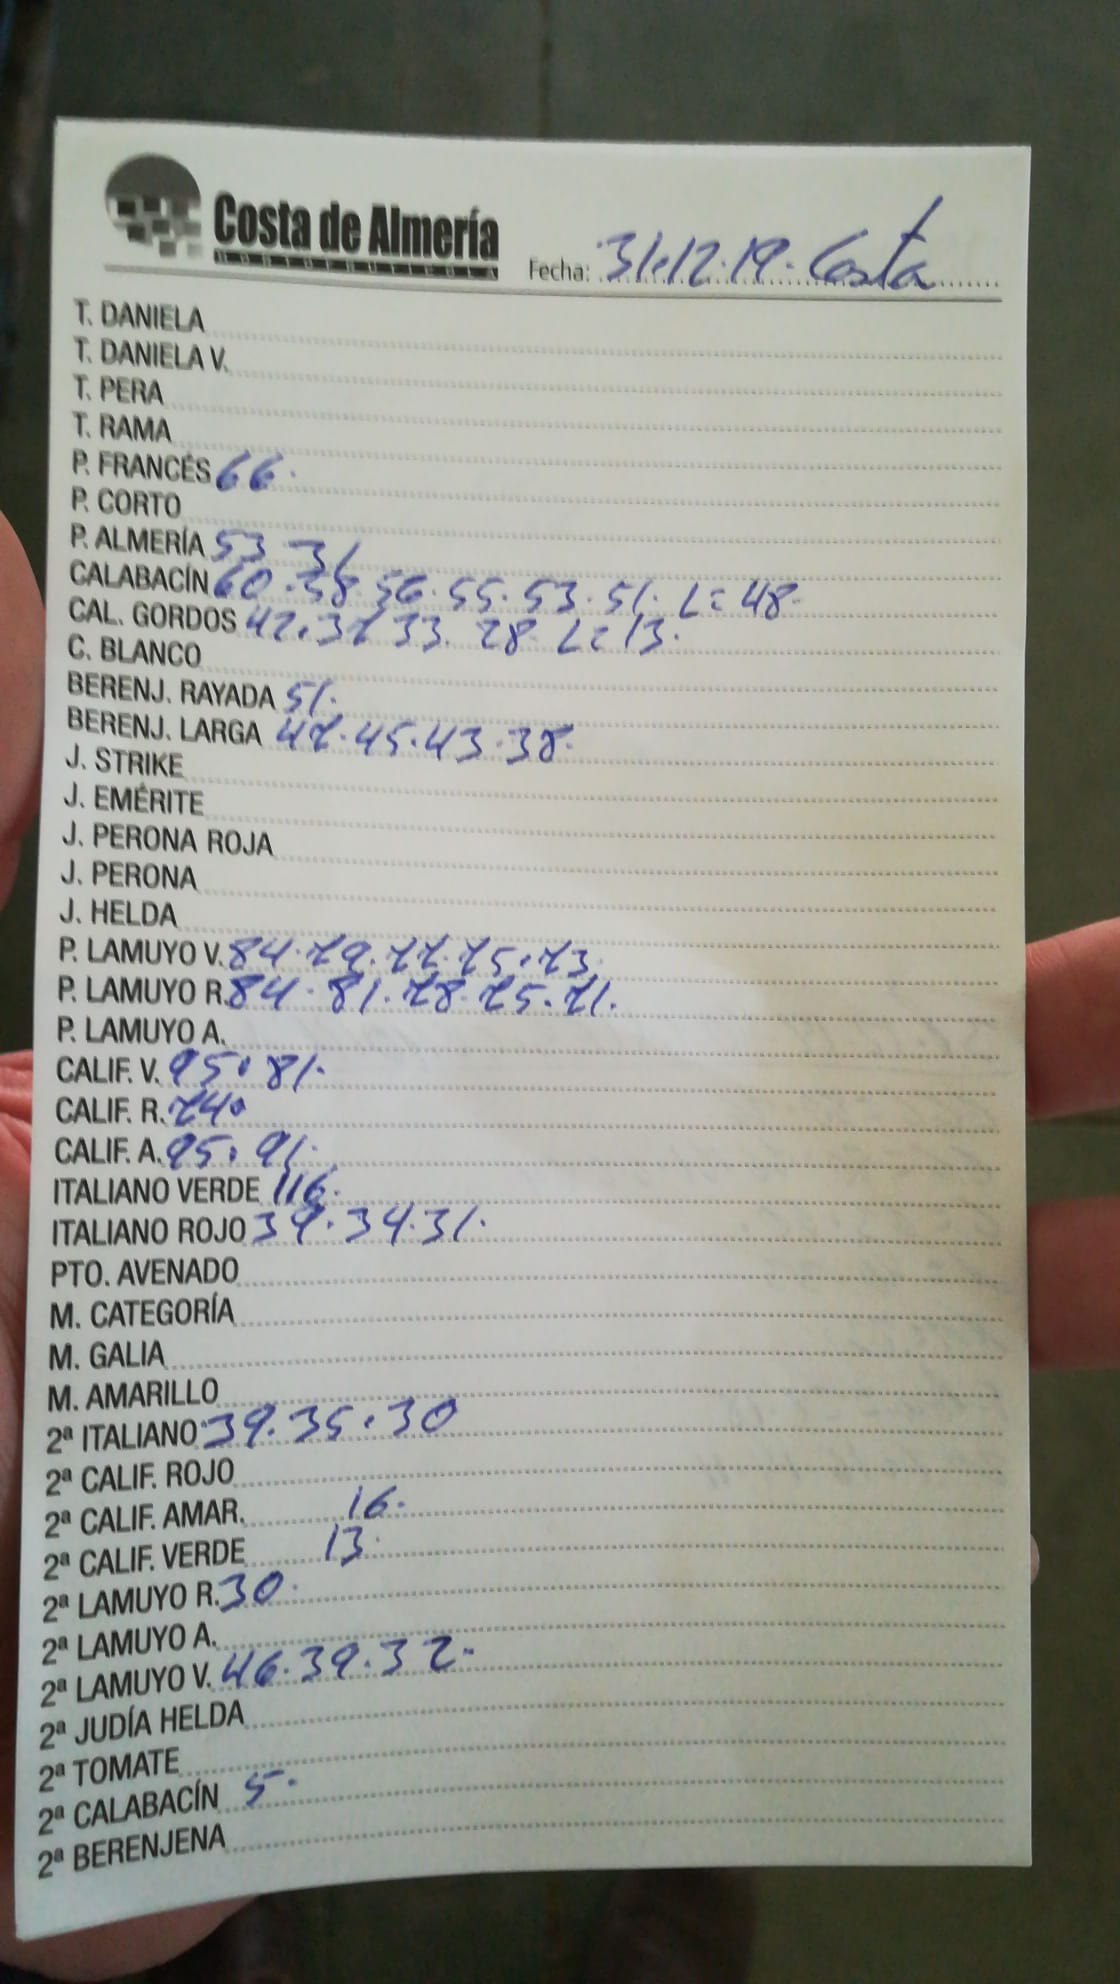 Costa de Almería
HORTOFRUTÍCOLA
Fecha: 31·12·19· Costa
T. DANIELA
T. DANIELA V.
T. PERA
T. RAMA
P. FRANCÉS 66·
P. CORTO
P. ALMERÍA 53 31
CALABACÍN 60·58·56·55·53·51· L= 48·
CAL. GORDOS 42·37 33· 28· L= 13·
C. BLANCO
BERENJ. RAYADA 51·
BERENJ. LARGA 47·45·43·38·
J. STRIKE
J. EMÉRITE
J. PERONA ROJA
J. PERONA
J. HELDA
P. LAMUYO V. 84·79·77·75·73·
P. LAMUYO R. 84·81·78·75·71·
P. LAMUYO A.
CALIF. V. 95·81·
CALIF. R. 74·
CALIF. A. 95·91·
ITALIANO VERDE 116·
ITALIANO ROJO 39·34·31·
PTO. AVENADO
M. CATEGORÍA
M. GALIA
M. AMARILLO
2ª ITALIANO 39·35·30
2ª CALIF. ROJO
2ª CALIF. AMAR. 16·
2ª CALIF. VERDE 13·
2ª LAMUYO R. 30·
2ª LAMUYO A.
2ª LAMUYO V. 46·39·32·
2ª JUDÍA HELDA
2ª TOMATE
2ª CALABACÍN 5·
2ª BERENJENA